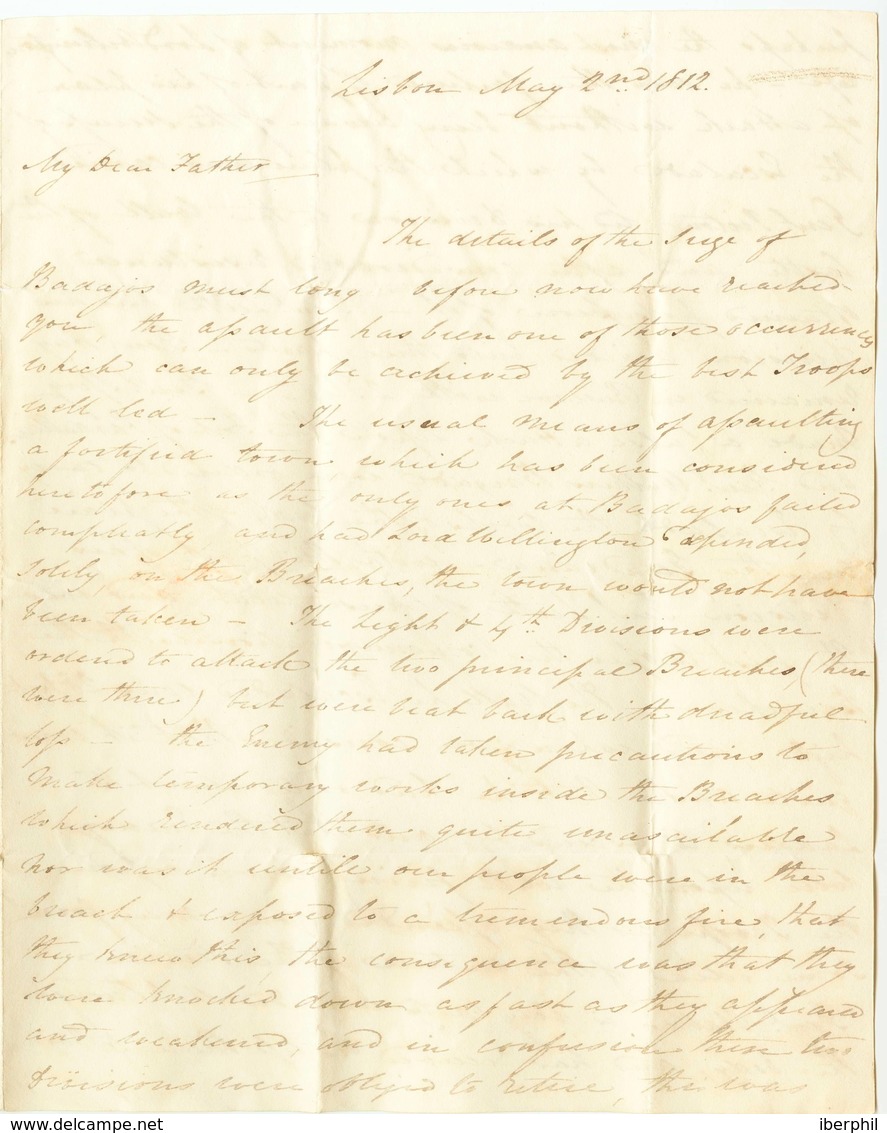 Lisbon May 2nd 1812.
My Dear Father
The details of the Siege of
Badajos must long before now have reached
you, the assault has been one of those occurrences
which can only be achieved by the best Troops
well led — The usual means of assaulting
a fortified town which has been considered
heretofore as the only ones at Badajos failed
compleatly and had Lord Wellington depended,
solely, on the Breaches, the town would not have
been taken — The Light & 4th Divisions were
ordered to attack the two principal Breaches, (there
were three) but were beat back with dreadful
loss — the Enemy had taken precautions to
make temporary works inside the Breaches
which rendered them quite unassailable
nor was it untill our people were in the
breach & exposed to a tremendous fire, that
they knew this, the consequence was that they
were knocked down as fast as they appeared
and weakened, and in confusion these two
Divisions were obliged to retire, this was
iberphil